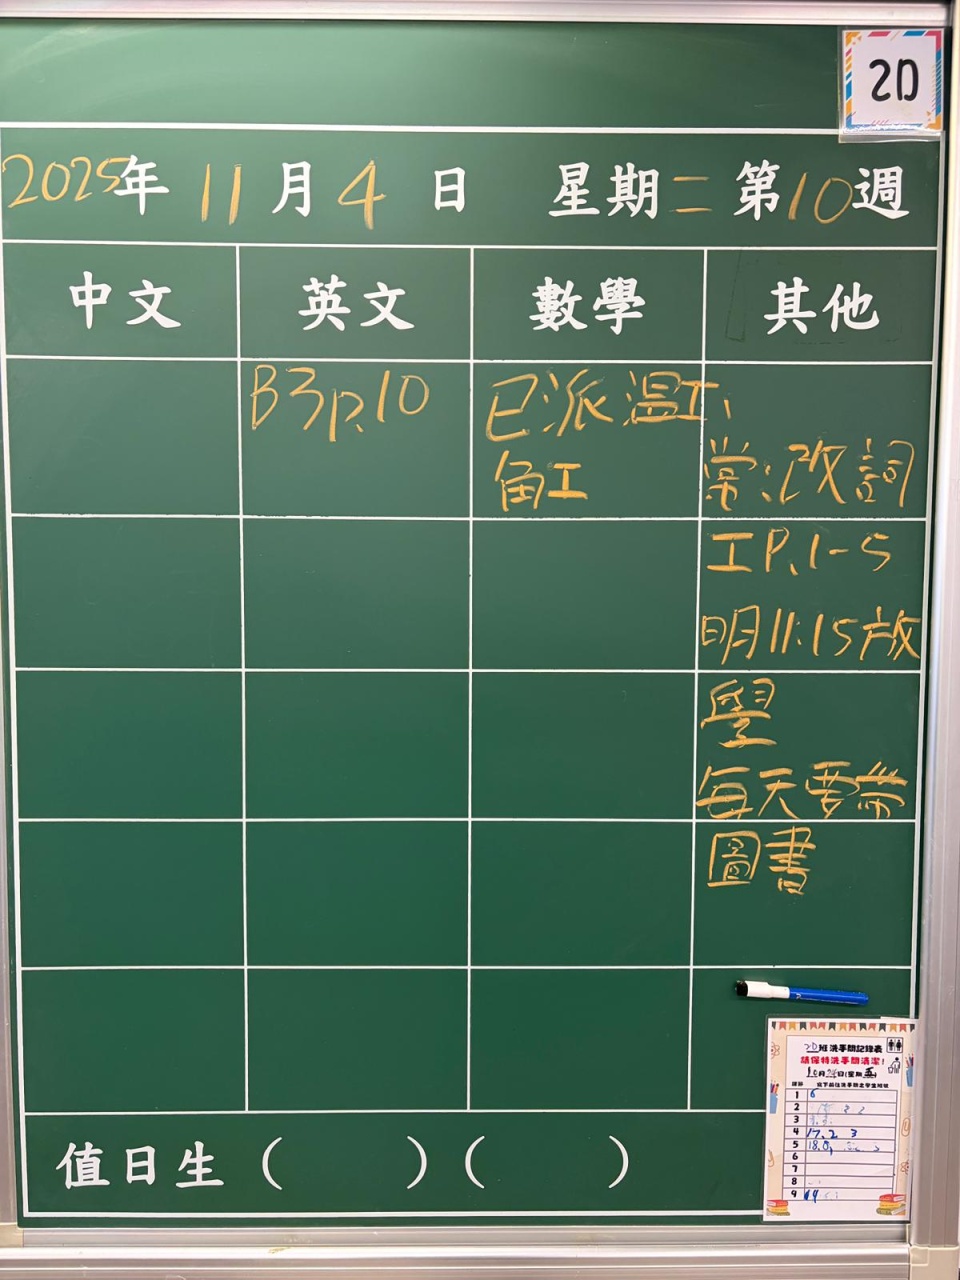 2D
2025年11月4日 星期二 第10週
中文 英文 數學 其他
B3 P.10
已派溫工、
角工
常:改詞
工P.1-5
明11:15放
學
每天要帶
圖書
2D班洗手間記錄表
請保持洗手間清潔!
1 6
2
3
4 17. 2 3
5
6
7
8
9
值日生( )( )